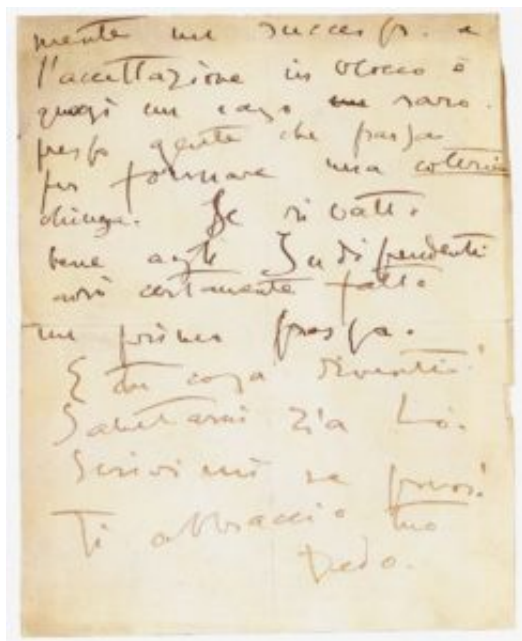 mente un successo. e
l'accettazione in blocco è
quasi un caso raro.
presso gente che passa
per formare una coterie
chiusa. Se si batte
bene agli Indipendenti
avrà certamente fatto
un primo passo.
E tu cosa diventi?
Salutami zia
Scrivimi se puoi.
Ti abbraccio tuo